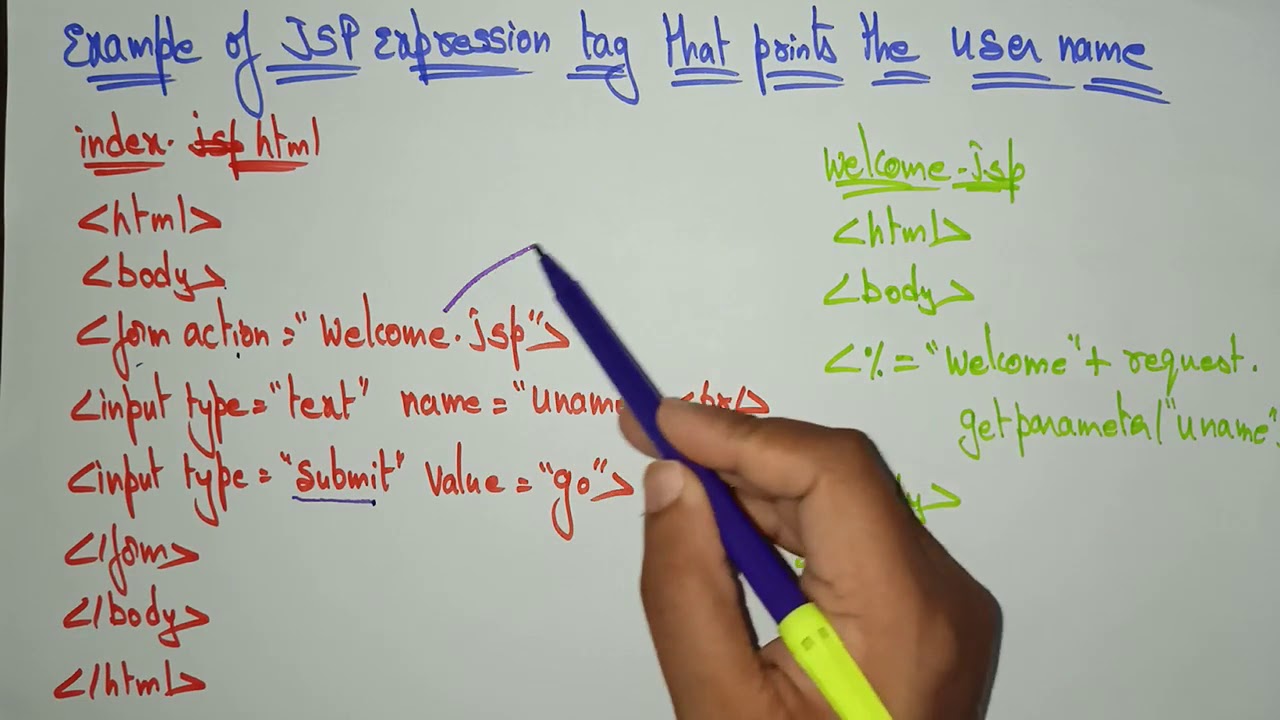 Example of JSP Expression tag that prints the user name
index. jsp html
<html>
<body>
<form action="welcome.jsp">
<input type="text" name="uname
<input type="submit" value="go">
</form>
</body>
</html>
welcome.jsp
<html>
<body>
<%="welcome"+ request.
getparameter("uname"